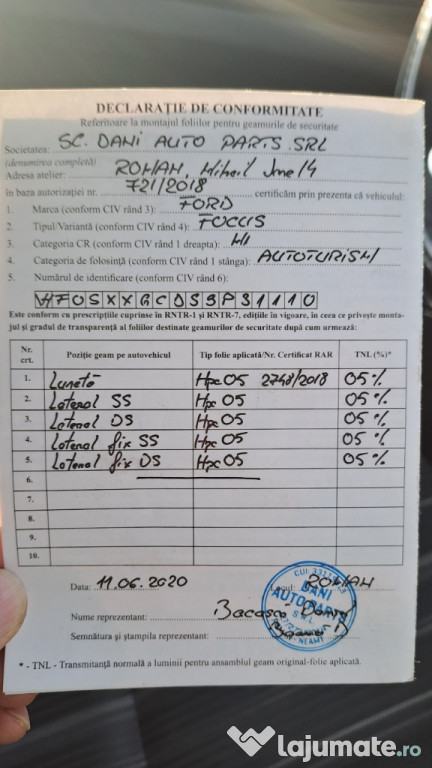 DECLARAȚIE DE CONFORMITATE
Referitoare la montajul foliilor pentru geamurile de securitate
Societatea: SC. DANI AUTO PARTS SRL
(denumirea completă)
Adresa atelier: ROMAN, Mihail 14
în baza autorizației nr. 721/2018 certificăm prin prezenta că vehiculul:
1. Marca (conform CIV rând 3): FORD
2. Tipul/Varianta (conform CIV rând 4): FOCUS
3. Categoria CR (conform CIV rând 1 dreapta): M1
4. Categoria de folosință (conform CIV rând 1 stânga): AUTOTURISM
5. Numărul de identificare (conform CIV rând 6):
Este conform cu prescripțiile cuprinse în RNTR-1 și RNTR-7, edițiile în vigoare, în ceea ce privește monta-
jul și gradul de transparență al foliilor destinate geamurilor de securitate după cum urmează:
Nr. crt. Poziție geam pe autovehicul Tip folie aplicată/Nr. Certificat RAR TNL (%)*
1. Lunetă Hpc 05 2748/2018 05%
2. Lateral SS Hpc 05 05%
3. Lateral DS Hpc 05 05%
4. Lateral fix SS Hpc 05 05%
5. Lateral fix DS Hpc 05 05%
6.
7.
8.
9.
10.
Data: 11.06.2020 Locul: ROMAN
Nume reprezentant:
Semnătura și ștampila reprezentant:
CUI
DANI
AUTO PARTS
S.R.L.
NEAMȚ
* - TNL - Transmitanță normală a luminii pentru ansamblul geam original-folie aplicată.
lajumate.ro